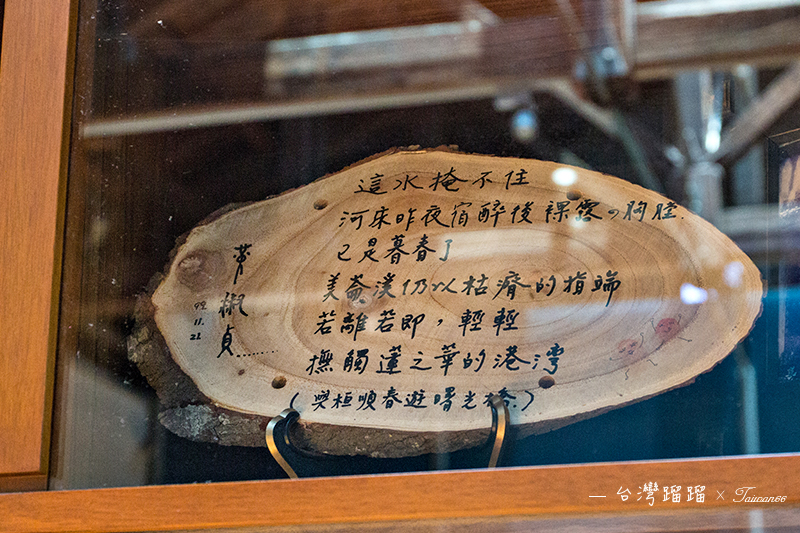 這水掩不住
河床昨夜宿醉後裸露の胸膛.
已是暮春了
美崙溪仍以枯瘠的指端
若離若即，輕輕
撫觸蓮之華的港灣
(與桓 春遊曙光橋.)
淑貞........
99.
11.
21
— 台灣蹓蹓 × Taiwan66